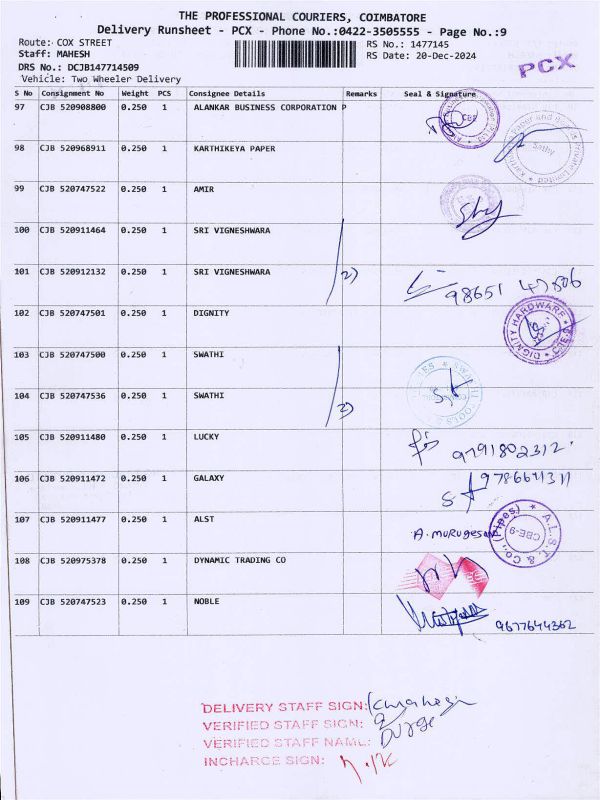 THE PROFESSIONAL COURIERS, COIMBATORE
Delivery Runsheet - PCX - Phone No.:0422-3505555 - Page No.:9
Route: COX STREET
Staff: MAHESH
DRS No.: DCJB147714509
Vehicle: Two Wheeler Delivery
RS No.: 1477145
RS Date: 20-Dec-2024
PCX
S No Consignment No Weight PCS Consignee Details Remarks Seal & Signature
97 CJB 520908800 0.250 1 ALANKAR BUSINESS CORPORATION P
CBE
98 CJB 520968911 0.250 1 KARTHIKEYA PAPER
Sathy
99 CJB 520747522 0.250 1 AMIR
100 CJB 520911464 0.250 1 SRI VIGNESHWARA
101 CJB 520912132 0.250 1 SRI VIGNESHWARA 2)
102 CJB 520747501 0.250 1 DIGNITY
DIGNITY HARDWARE
103 CJB 520747500 0.250 1 SWATHI
104 CJB 520747536 0.250 1 SWATHI 2)
SWATHI TOOLS
105 CJB 520911480 0.250 1 LUCKY
9791802312.
106 CJB 520911472 0.250 1 GALAXY
107 CJB 520911477 0.250 1 ALST A. MURUGESAN
A.L.S.T. & Co., (Pipes)
CBE-9
108 CJB 520975378 0.250 1 DYNAMIC TRADING CO
109 CJB 520747523 0.250 1 NOBLE
9677644362
DELIVERY STAFF SIGN:
VERIFIED STAFF SIGN:
VERIFIED STAFF NAME:
INCHARGE SIGN: